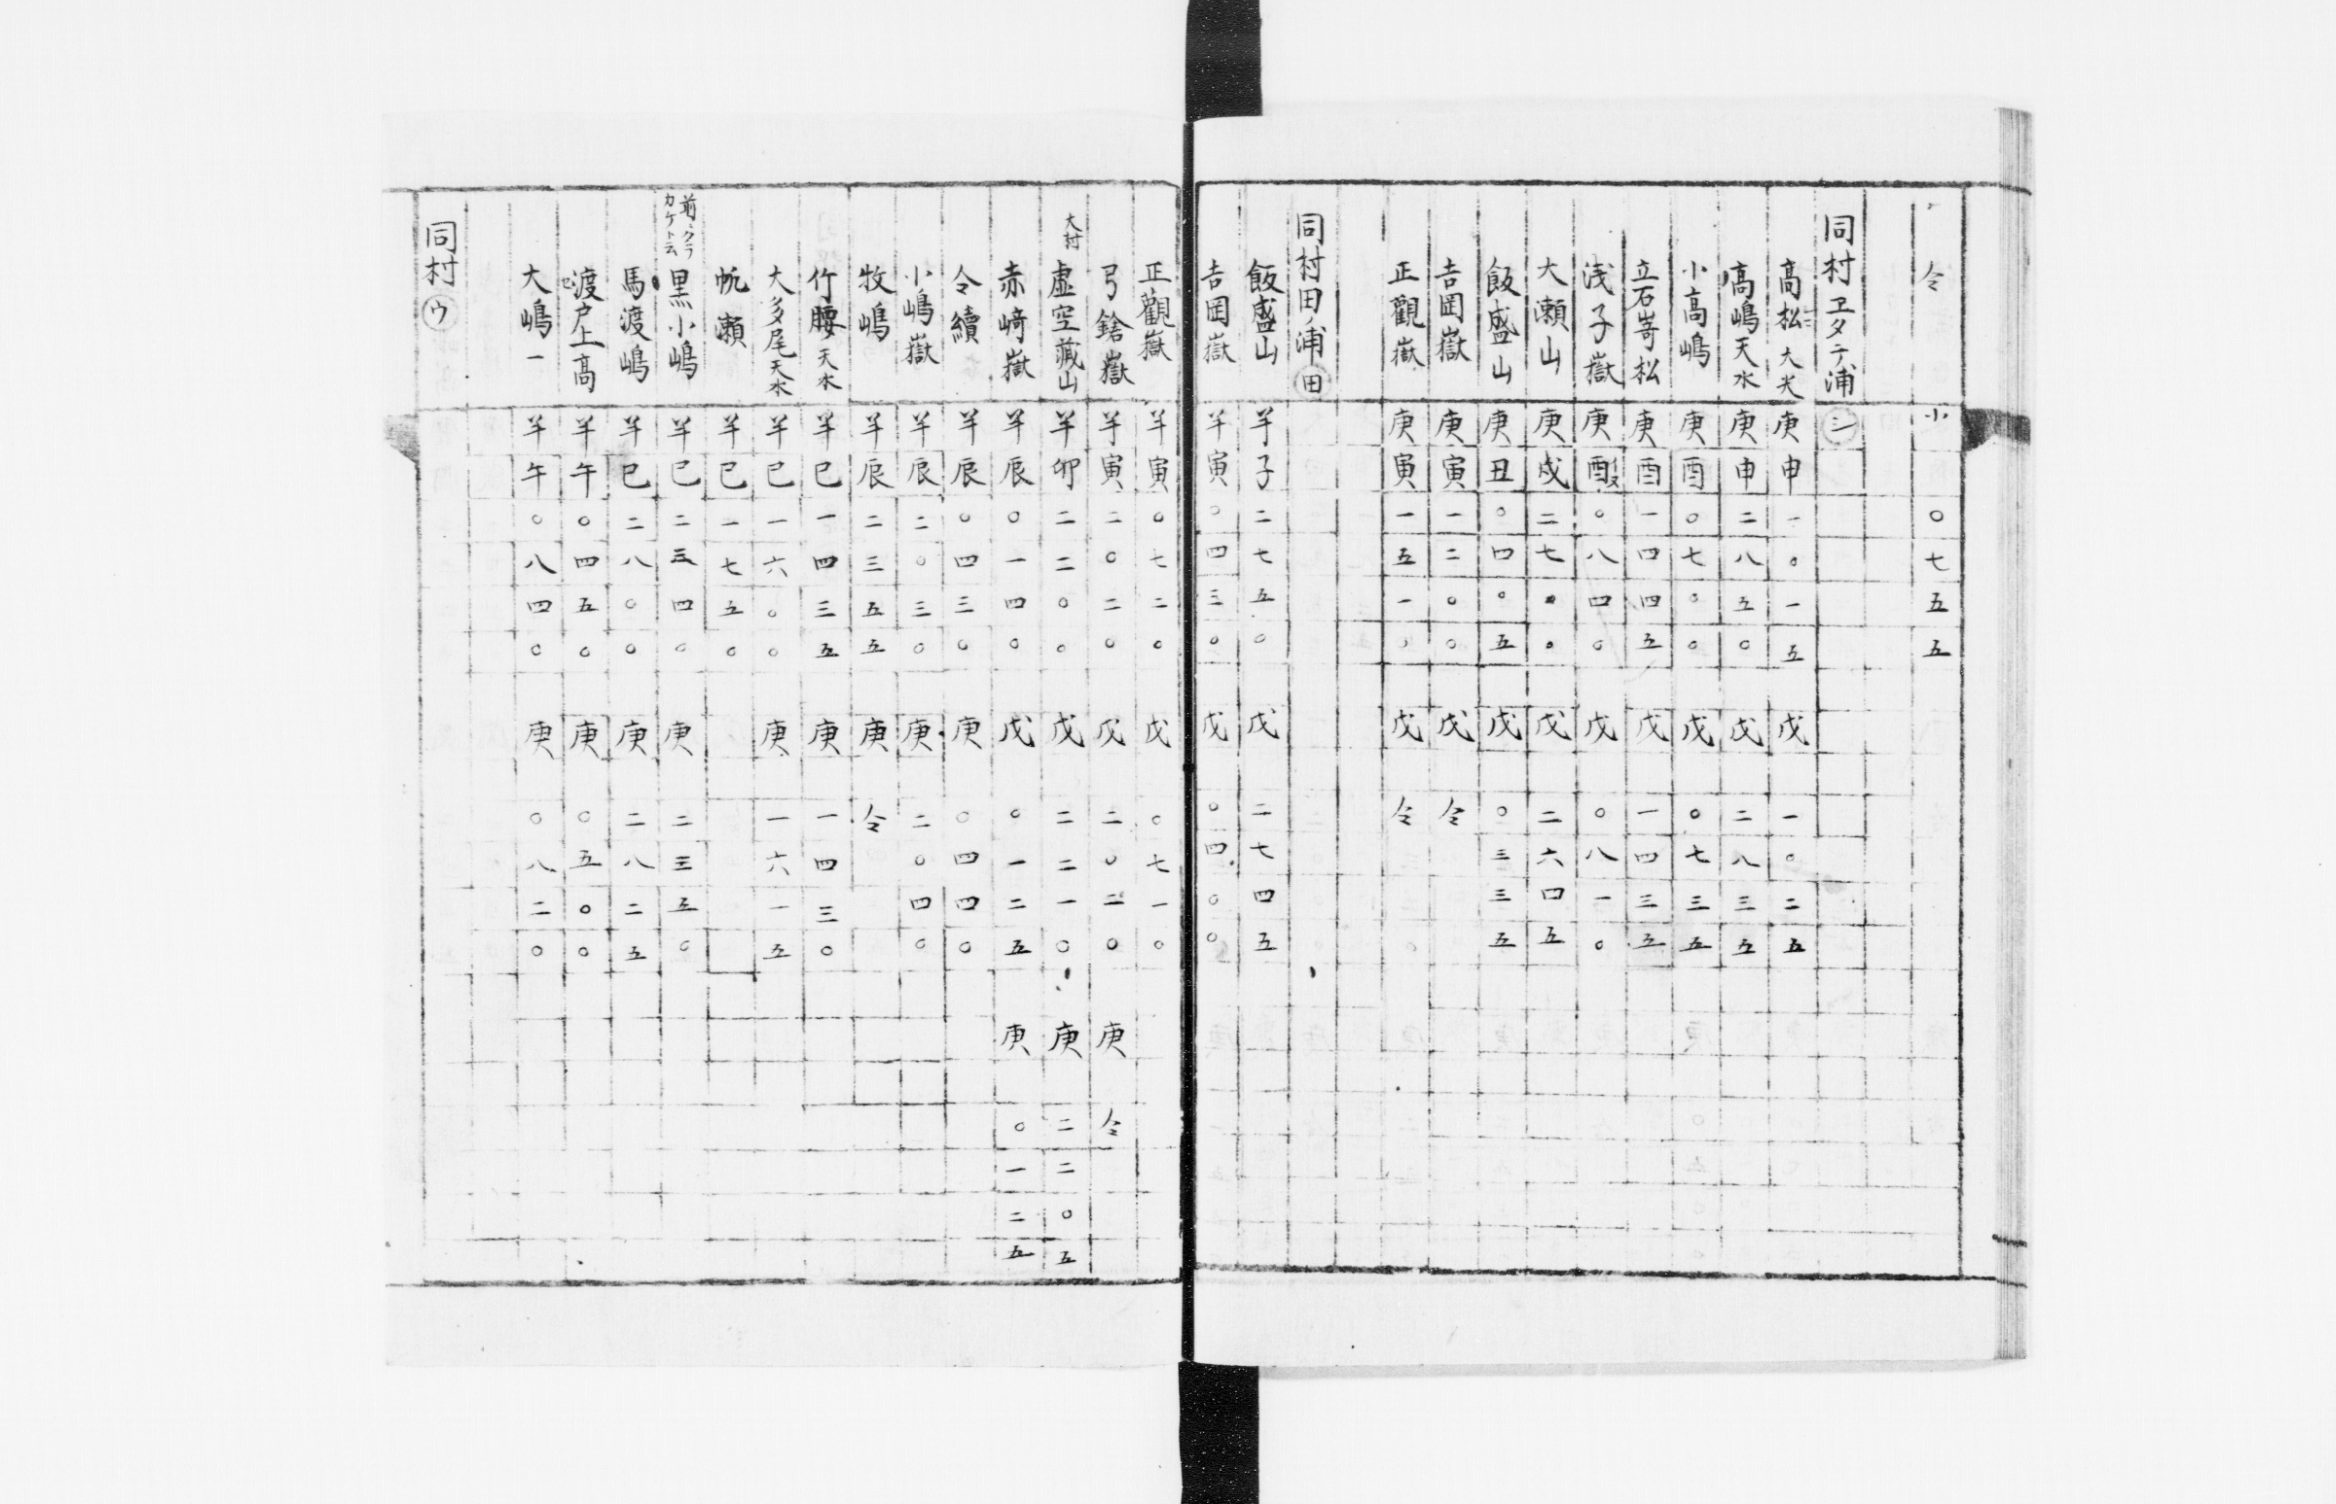 仝 小 〇七五五
同村ヱタテ浦 シ
高松 大犬 庚申 一〇一五 戊 一〇二五
高嶋天水 庚申 二八五〇 戊 二八三五
小高嶋 庚酉 〇七〇〇 戊 〇七三五
立石嵜松 庚酉 一四四五 戊 一四三五
浅子嶽 庚酉 〇八四〇 戊 〇八一〇
大瀬山 庚戌 二七〇〇 戊 二六四五
飯盛山 庚丑 〇四〇五 戊 〇三三五
吉岡嶽 庚寅 一二〇〇 戊 仝
正觀嶽 庚寅 一五一〇 戊 仝
同村田ノ浦 田
飯盛山 羊子 二七五〇 戊 二七四五
吉岡嶽 羊寅 〇四三〇 戊 〇四〇〇
正觀嶽 羊寅 〇七二〇 戊 〇七一〇
弓鎗嶽 羊寅 二〇二〇 戊 二〇二〇 庚 仝
大村 虚空藏山 羊卯 二二〇〇 戊 二二一〇 庚 二二〇五
赤﨑嶽 羊辰 〇一四〇 戊 〇一二五 庚 〇一二五
仝續 羊辰 〇四三〇 庚 〇四四〇
小嶋嶽 羊辰 二〇三〇 庚 二〇四〇
牧嶋 羊辰 二三五五 庚 仝
竹腰天水 羊巳 一四三五 庚 一四三〇
大多尾天水 羊巳 一六〇〇 庚 一六一五
帆瀬 羊巳 一七五〇
前ハクラカケト云 黒小嶋 羊巳 二三四〇 庚 二三五〇
馬渡嶋 羊巳 二八〇〇 庚 二八二五
渡戸上高 羊午 〇四五〇 庚 〇五〇〇
大嶋一 羊午 〇八四〇 庚 〇八二〇
同村 ウ